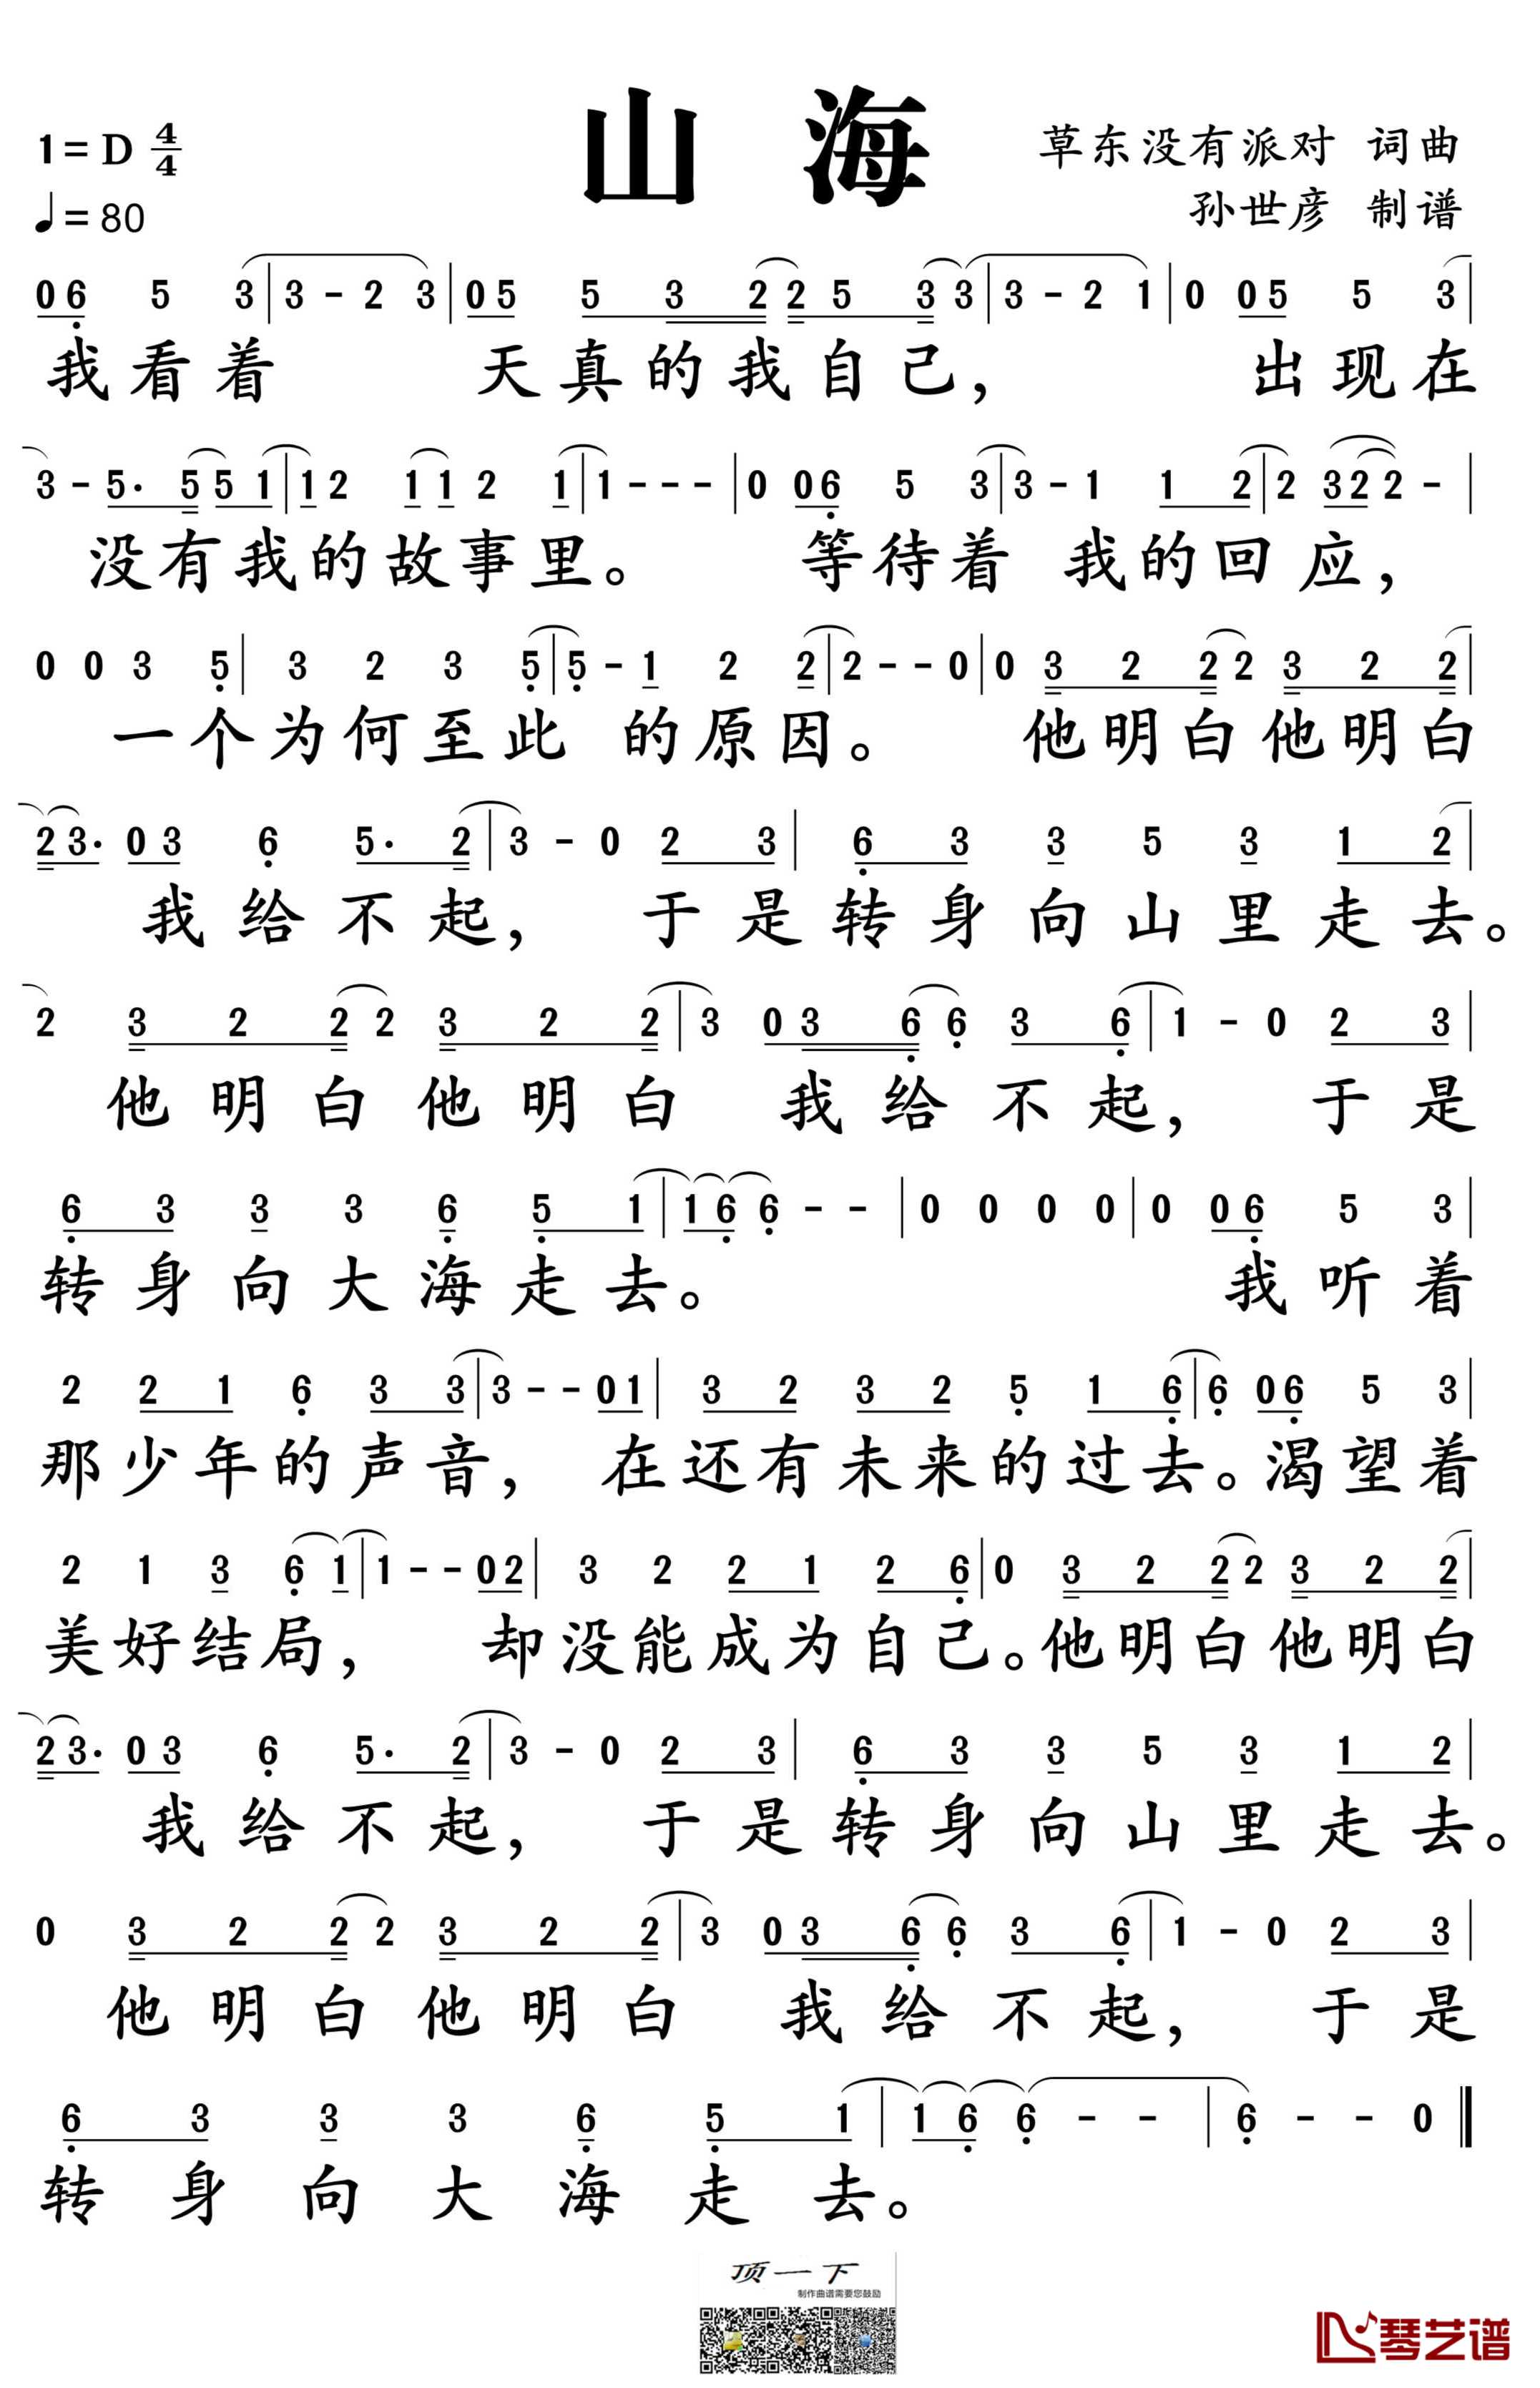 山 海
1=D 4/4
草东没有派对 词曲
♩=80
孙世彦 制谱
0 6 5 3 | 3 - 2 3 | 0 5 5 3 2 2 5 3 3 | 3 - 2 1 | 0 0 5 5 3 |
我看着 天真的我自己, 出现在
3 - 5. 5 5 1 | 1 2 1 1 2 1 | 1 - - - | 0 0 6 5 3 | 3 - 1 1 2 | 2 3 2 2 - |
没有我的故事里。 等待着 我的回应,
0 0 3 5 | 3 2 3 5 | 5 - 1 2 2 | 2 - - 0 | 0 3 2 2 2 3 2 2 |
一个为何至此 的原因。 他明白他明白
2 3. 0 3 6 5. 2 | 3 - 0 2 3 | 6 3 3 5 3 1 2 |
我给不起, 于是转身向山里走去。
2 3 2 2 2 3 2 2 | 3 0 3 6 6 3 6 | 1 - 0 2 3 |
他明白他明白 我给不起, 于是
6 3 3 3 6 5 1 | 1 6 6 - - | 0 0 0 0 | 0 0 6 5 3 |
转身向大海走去。 我听着
2 2 1 6 3 3 | 3 - - 0 1 | 3 2 3 2 5 1 6 | 6 0 6 5 3 |
那少年的声音, 在还有未来的过去。渴望着
2 1 3 6 1 | 1 - - 0 2 | 3 2 2 1 2 6 | 0 3 2 2 2 3 2 2 |
美好结局, 却没能成为自己。他明白他明白
2 3. 0 3 6 5. 2 | 3 - 0 2 3 | 6 3 3 5 3 1 2 |
我给不起, 于是转身向山里走去。
0 3 2 2 2 3 2 2 | 3 0 3 6 6 3 6 | 1 - 0 2 3 |
他明白他明白 我给不起, 于是
6 3 3 3 6 5 1 | 1 6 6 - - | 6 - - 0 ‖
转身向大海走去。
顶一下
制作曲谱需要您鼓励
琴艺谱